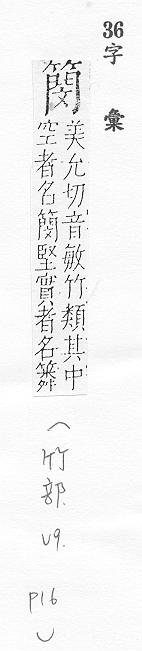 36
字彙
簢
美允切音敏竹類其中
空者名簢堅實者名
(竹部. U9. P16)